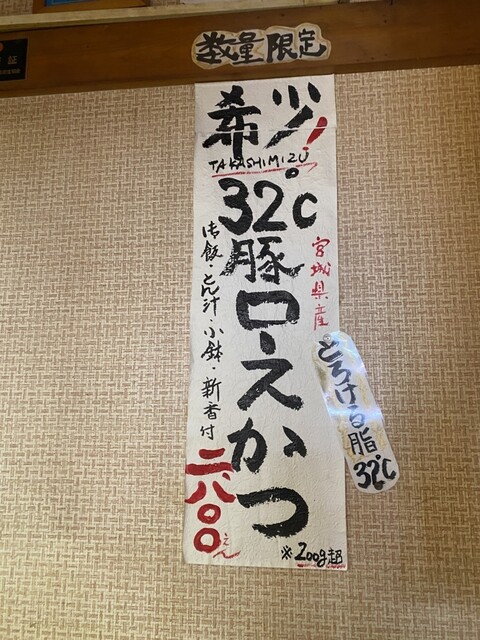 数量限定
希少!
TAKASHIMIZU
32℃豚ロースかつ
宮城県産
とろける脂32℃
御飯・とん汁・小鉢・新香付
二、八〇〇えん
※200g超
証